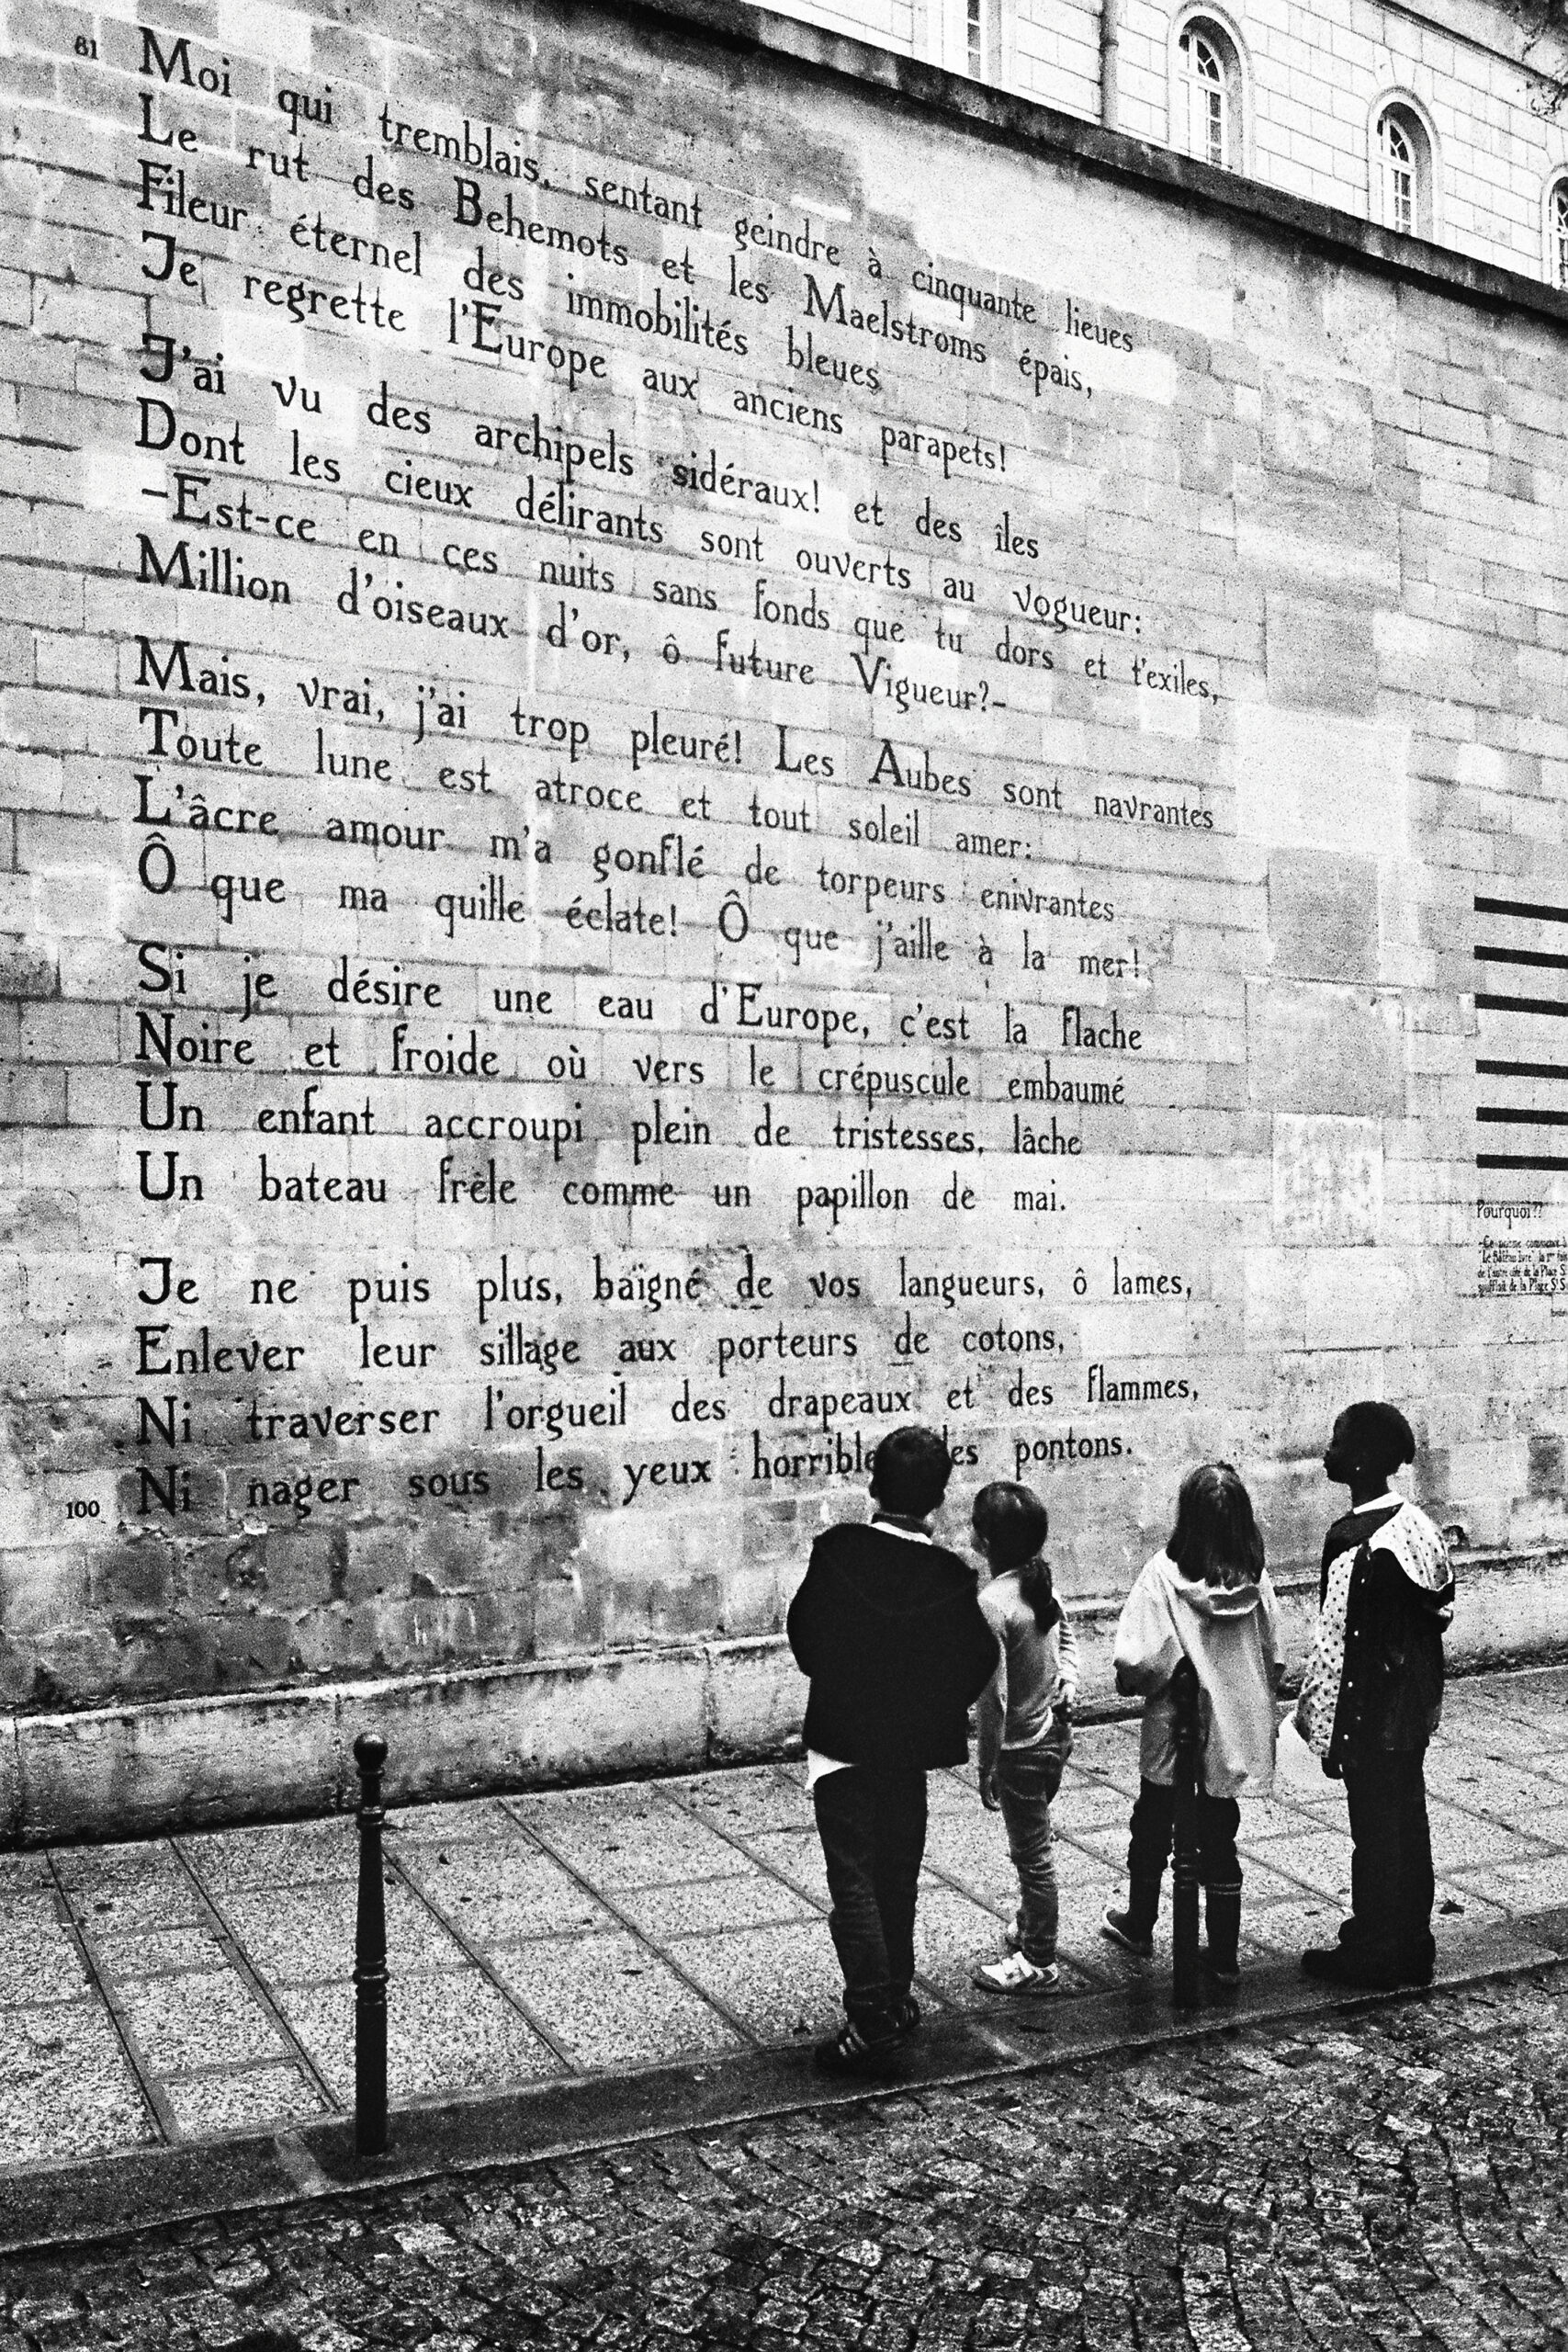 81 Moi qui tremblais, sentant geindre à cinquante lieues
Le rut des Behemots et les Maelstroms épais,
Fileur éternel des immobilités bleues
Je regrette l'Europe aux anciens parapets!
J'ai vu des archipels sidéraux! et des îles
Dont les cieux délirants sont ouverts au vogueur:
-Est-ce en ces nuits sans fonds que tu dors et t'exiles,
Million d'oiseaux d'or, ô future Vigueur?-
Mais, vrai, j'ai trop pleuré! Les Aubes sont navrantes
Toute lune est atroce et tout soleil amer:
L'âcre amour m'a gonflé de torpeurs enivrantes
Ô que ma quille éclate! Ô que j'aille à la mer!
Si je désire une eau d'Europe, c'est la flache
Noire et froide où vers le crépuscule embaumé
Un enfant accroupi plein de tristesses, lâche
Un bateau frêle comme un papillon de mai.
Je ne puis plus, baigné de vos langueurs, ô lames,
Enlever leur sillage aux porteurs de cotons,
Ni traverser l'orgueil des drapeaux et des flammes,
100 Ni nager sous les yeux horrible es pontons.
Pourquoi??
-Ce poème commence à
"Le Bateau ivre" la 1re fois
de l'autre côté de la Place S
soufflait de la Place St S